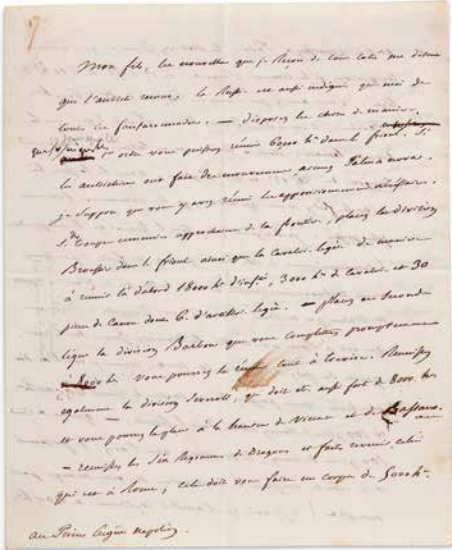 Mon fils, les nouvelles que je reçois de tous cotés me disent
que l'autriche remue. la Russie est aussi indignée que moi de
toutes ces fanfaronnades. — disposez les choses de manière
que
ordre vous puissiez réunir 60000 h. dans le frioul. Si
les autrichiens ont fait des mouvemens armez Palma nova.
je suppose que vous y avez réuni les approvisionnements nécessaires.
Si des troupes ennemies approchaient de la frontière, placez la division
Broussier dans le frioul ainsi que la cavalerie légère de manière
à réunir là d'abord 18000 h. d'infie, 3000 h. de cavalerie et 30
pièces de canon dont 6. d'artillerie légère. — placez en seconde
ligne la division Barbou que vous completterez promptement
à 8000 h. vous pourrez la réunir toute à trevise. Réunissez
également la division Severoli, qui doit etre aussi forte de 8000. h.
et vous pourrez la placer à la hauteur de Vicence et de Bassano.
— réunissez les Six Régimens de Dragons et faites revenir celui
qui est à Rome, cela doit vous faire un corps de 5000 h.
au Prince Eugène Napoléon.